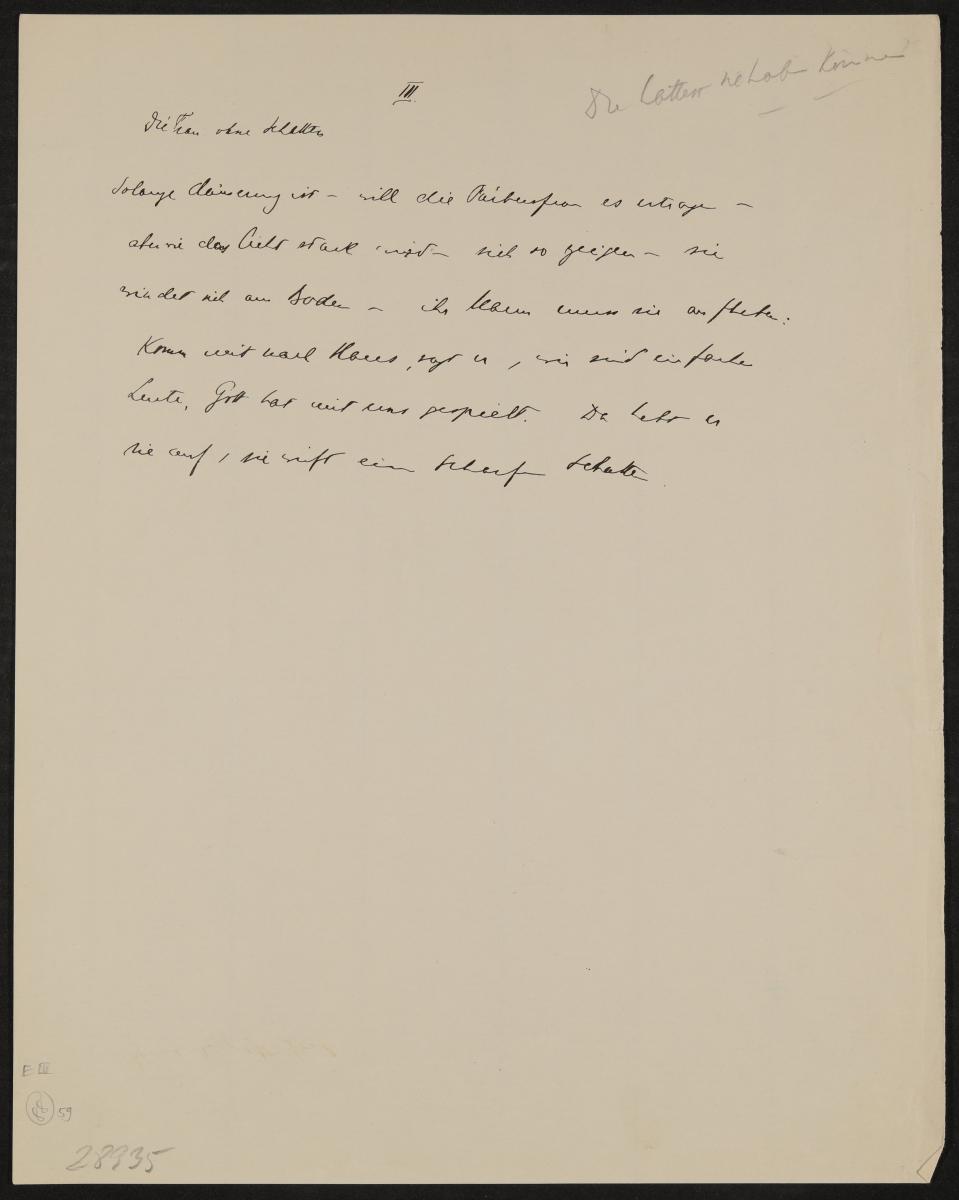 III.
Die Frau ohne Schatten
Solange Dämmerung ist – will die Färbersfrau es ertragen –
aber wie das Licht stark wird – sich so zeigen – sie
windet sich am Boden – ihr Mann muss sie aufheben:
Komm mit nach Haus, sagt er, wir sind einfache
Leute, Gott hat mit uns gespielt. Da hebt er
sie auf, sie wirft einen scharfen Schatten.
E III
59
28935